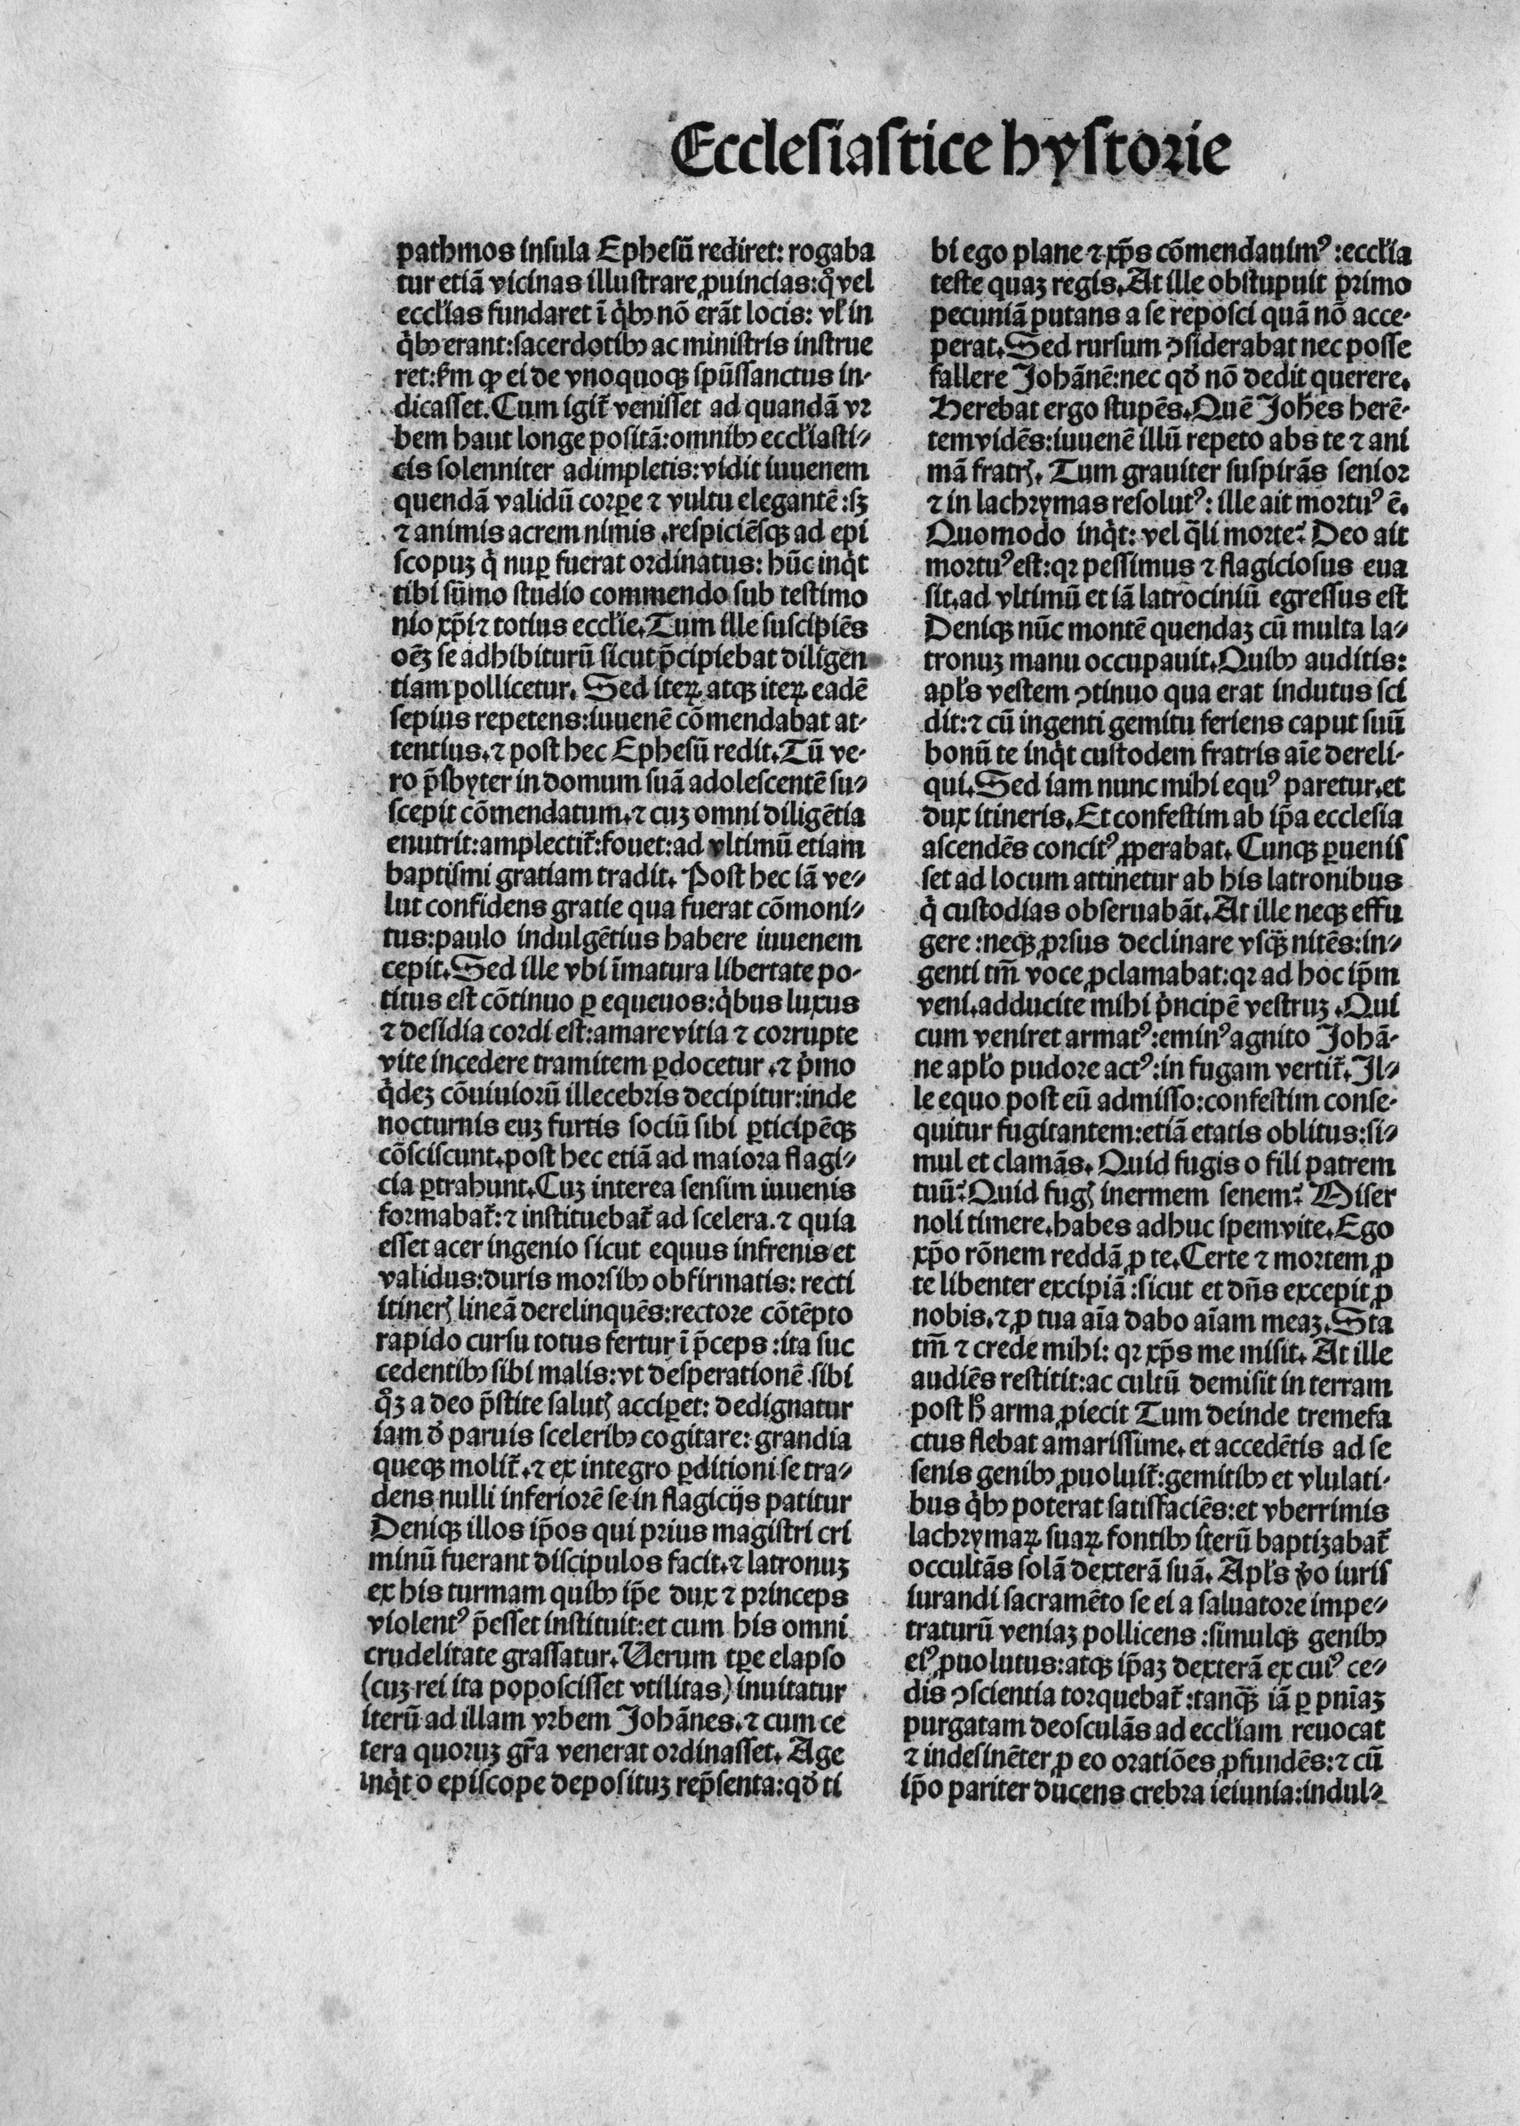 Ecclesiastice hystorie
pathmos insula Ephesū rediret: rogaba
tur etiā vicinas illustrare ꝓuincias: qͦ vel
eccl'ias fundaret ī qͥbꝰ nō erāt locis: vl' in
qͥbꝰ erant: sacerdotibꝰ ac ministris instrue
ret: km̄ ꝙ ei de vnoquoqꝫ spūssanctus in-
dicasset. Cum igit̄ venisset ad quandā vr
bem haut longe positā: omnibꝰ eccl'iasti-
cis solenniter adimpletis: vidit iuuenem
quendā validū corꝑe ⁊ vultu elegantē: sꝫ
⁊ animis acrem nimis. respiciēsqꝫ ad epi
scopuꝫ qͥ nuꝑ fuerat ordinatus: hūc inqͥt
tibi sūmo studio commendo sub testimo
nio xp̄i ⁊ totius eccl'ie. Tum ille suscipiēs
oēꝫ se adhibiturū sicut p̄cipiebat diligen
tiam pollicetur. Sed iteꝝ atqꝫ iteꝝ eadē
sepius repetens: iuuenē cōmendabat at-
tentius. ⁊ post hec Ephesū redit. Tū ve-
ro p̄sbyter in domum suā adolescentē su-
scepit cōmendatum. ⁊ cuꝫ omni diligētia
enutrit: amplectit̄: fouet: ad vltimū etiam
baptismi gratiam tradit. Post hec iā ve-
lut confidens gratie qua fuerat cōmoni-
tus: paulo indulgētius habere iuuenem
cepit. Sed ille vbi īmatura libertate po-
titus est cōtinuo ꝑ equeuos: qͥbus luxus
⁊ desidia cordi est: amare vitia ⁊ corrupte
vite incedere tramitem ꝑdocetur. ⁊ pͥmo
qͥdeꝫ cōuiuiorū illecebris decipitur: inde
nocturnis euꝫ furtis sociū sibi ꝑticipēqꝫ
cōsciscunt. post hec etiā ad maiora flagi-
cia ꝑtrahunt. Cuꝫ interea sensim iuuenis
formabat̄: ⁊ instituebat̄ ad scelera. ⁊ quia
esset acer ingenio sicut equus infrenis et
validus: duris morsibꝰ obfirmatis: recti
itineris lineā derelinquēs: rectore cōtēpto
rapido cursu totus fertur ī p̄ceps: ita suc
cedentibꝰ sibi malis: vt desperationē sibi
qͦꝫ a deo p̄stite salutis acciꝑet: dedignatur
iam đ paruis sceleribꝰ cogitare: grandia
queqꝫ molit̄. ⁊ ex integro ꝑditioni se tra-
dens nulli inferiorē se in flagicijs patitur
Deniqꝫ illos ip̄os qui prius magistri cri
minū fuerant discipulos facit. ⁊ latronuꝫ
ex his turmam quibꝰ ip̄e dux ⁊ princeps
violentꝰ p̄esset instituit: et cum his omni
crudelitate grassatur. Uerum tꝑe elapso
(cuꝫ rei ita poposcisset vtilitas) inuitatur
iterū ad illam vrbem Johānes. ⁊ cum ce
tera quoruꝫ gr̄a venerat ordinasset. Age
inqͥt o episcope deposituꝫ rep̄senta: qđ ti
bi ego plane ⁊ xp̄s cōmendauimꝰ: eccl'ia
teste quaꝫ regis. At ille obstupuit primo
pecuniā putans a se reposci quā nō acce-
perat. Sed rursum ꝯsiderabat nec posse
fallere Johānē: nec qđ nō dedit querere.
Herebat ergo stupēs. Quē Joh̄es herē-
tem vidēs: iuuenē illū repeto abs te ⁊ ani
mā fratris. Tum grauiter suspirās senior
⁊ in lachrymas resolutꝰ: ille ait mortuꝰ ē.
Quomodo inqͥt: vel qͣli morte? Deo ait
mortuꝰ est: qꝛ pessimus ⁊ flagiciosus eua
sit. ad vltimū et iā latrociniū egressus est
Deniqꝫ nūc montē quendaꝫ cū multa la-
tronuꝫ manu occupauit. Quibꝰ auditis:
apl's vestem ꝯtinuo qua erat indutus sci
dit: ⁊ cū ingenti gemitu feriens caput suū
bonū te inqͥt custodem fratris aīe dereli-
qui. Sed iam nunc mihi equꝰ paretur. et
dux itineris. Et confestim ab ip̄a ecclesia
ascendēs concitꝰ ꝓperabat. Cunqꝫ ꝑuenis
set ad locum attinetur ab his latronibus
qͥ custodias obseruabāt. At ille neqꝫ effu
gere: neqꝫ ꝓrsus declinare vsqͣꝫ nitēs: in-
genti tm̄ voce ꝓclamabat: qꝛ ad hoc ip̄m
veni. adducite mihi pͥncipē vestruꝫ. Qui
cum veniret armatꝰ: eminꝰ agnito Johā-
ne apl'o pudore actꝰ: in fugam vertit̄. Il-
le equo post eū admisso: confestim conse-
quitur fugitantem: etiā etatis oblitus: si-
mul et clamās. Quid fugis o fili patrem
tuū? Quid fugis inermem senem? Miser
noli timere. habes adhuc spem vite. Ego
xp̄o rōnem reddā ꝓ te. Certe ⁊ mortem ꝓ
te libenter excipiā: sicut et dn̄s excepit ꝓ
nobis. ⁊ ꝓ tua aīa dabo aīam meaꝫ. Sta
tm̄ ⁊ crede mihi: qꝛ xp̄s me misit. At ille
audiēs restitit: ac cultū demisit in terram
post hͦ arma ꝓiecit Tum deinde tremefa
ctus flebat amarissime. et accedētis ad se
senis genibꝰ ꝓuoluit̄: gemitibꝰ et vlulati-
bus qͥbꝰ poterat satisfaciēs: et vberrimis
lachrymaꝝ suaꝝ fontibꝰ iterū baptizabat̄
occultās solā dexterā suā. Apl's v̄o iuris
iurandi sacramēto se ei a saluatore impe-
traturū veniaꝫ pollicens: simulqꝫ genibꝰ
eiꝰ ꝓuolutus: atqꝫ ip̄aꝫ dexterā ex cuiꝰ ce-
dis ꝯscientia torquebat̄: tanqͣꝫ iā ꝑ pnīaꝫ
purgatam deosculās ad eccl'iam reuocat
⁊ indesinēter ꝓ eo oratiōes ꝓfundēs: ⁊ cū
ip̄o pariter ducens crebra ieiunia: indul-